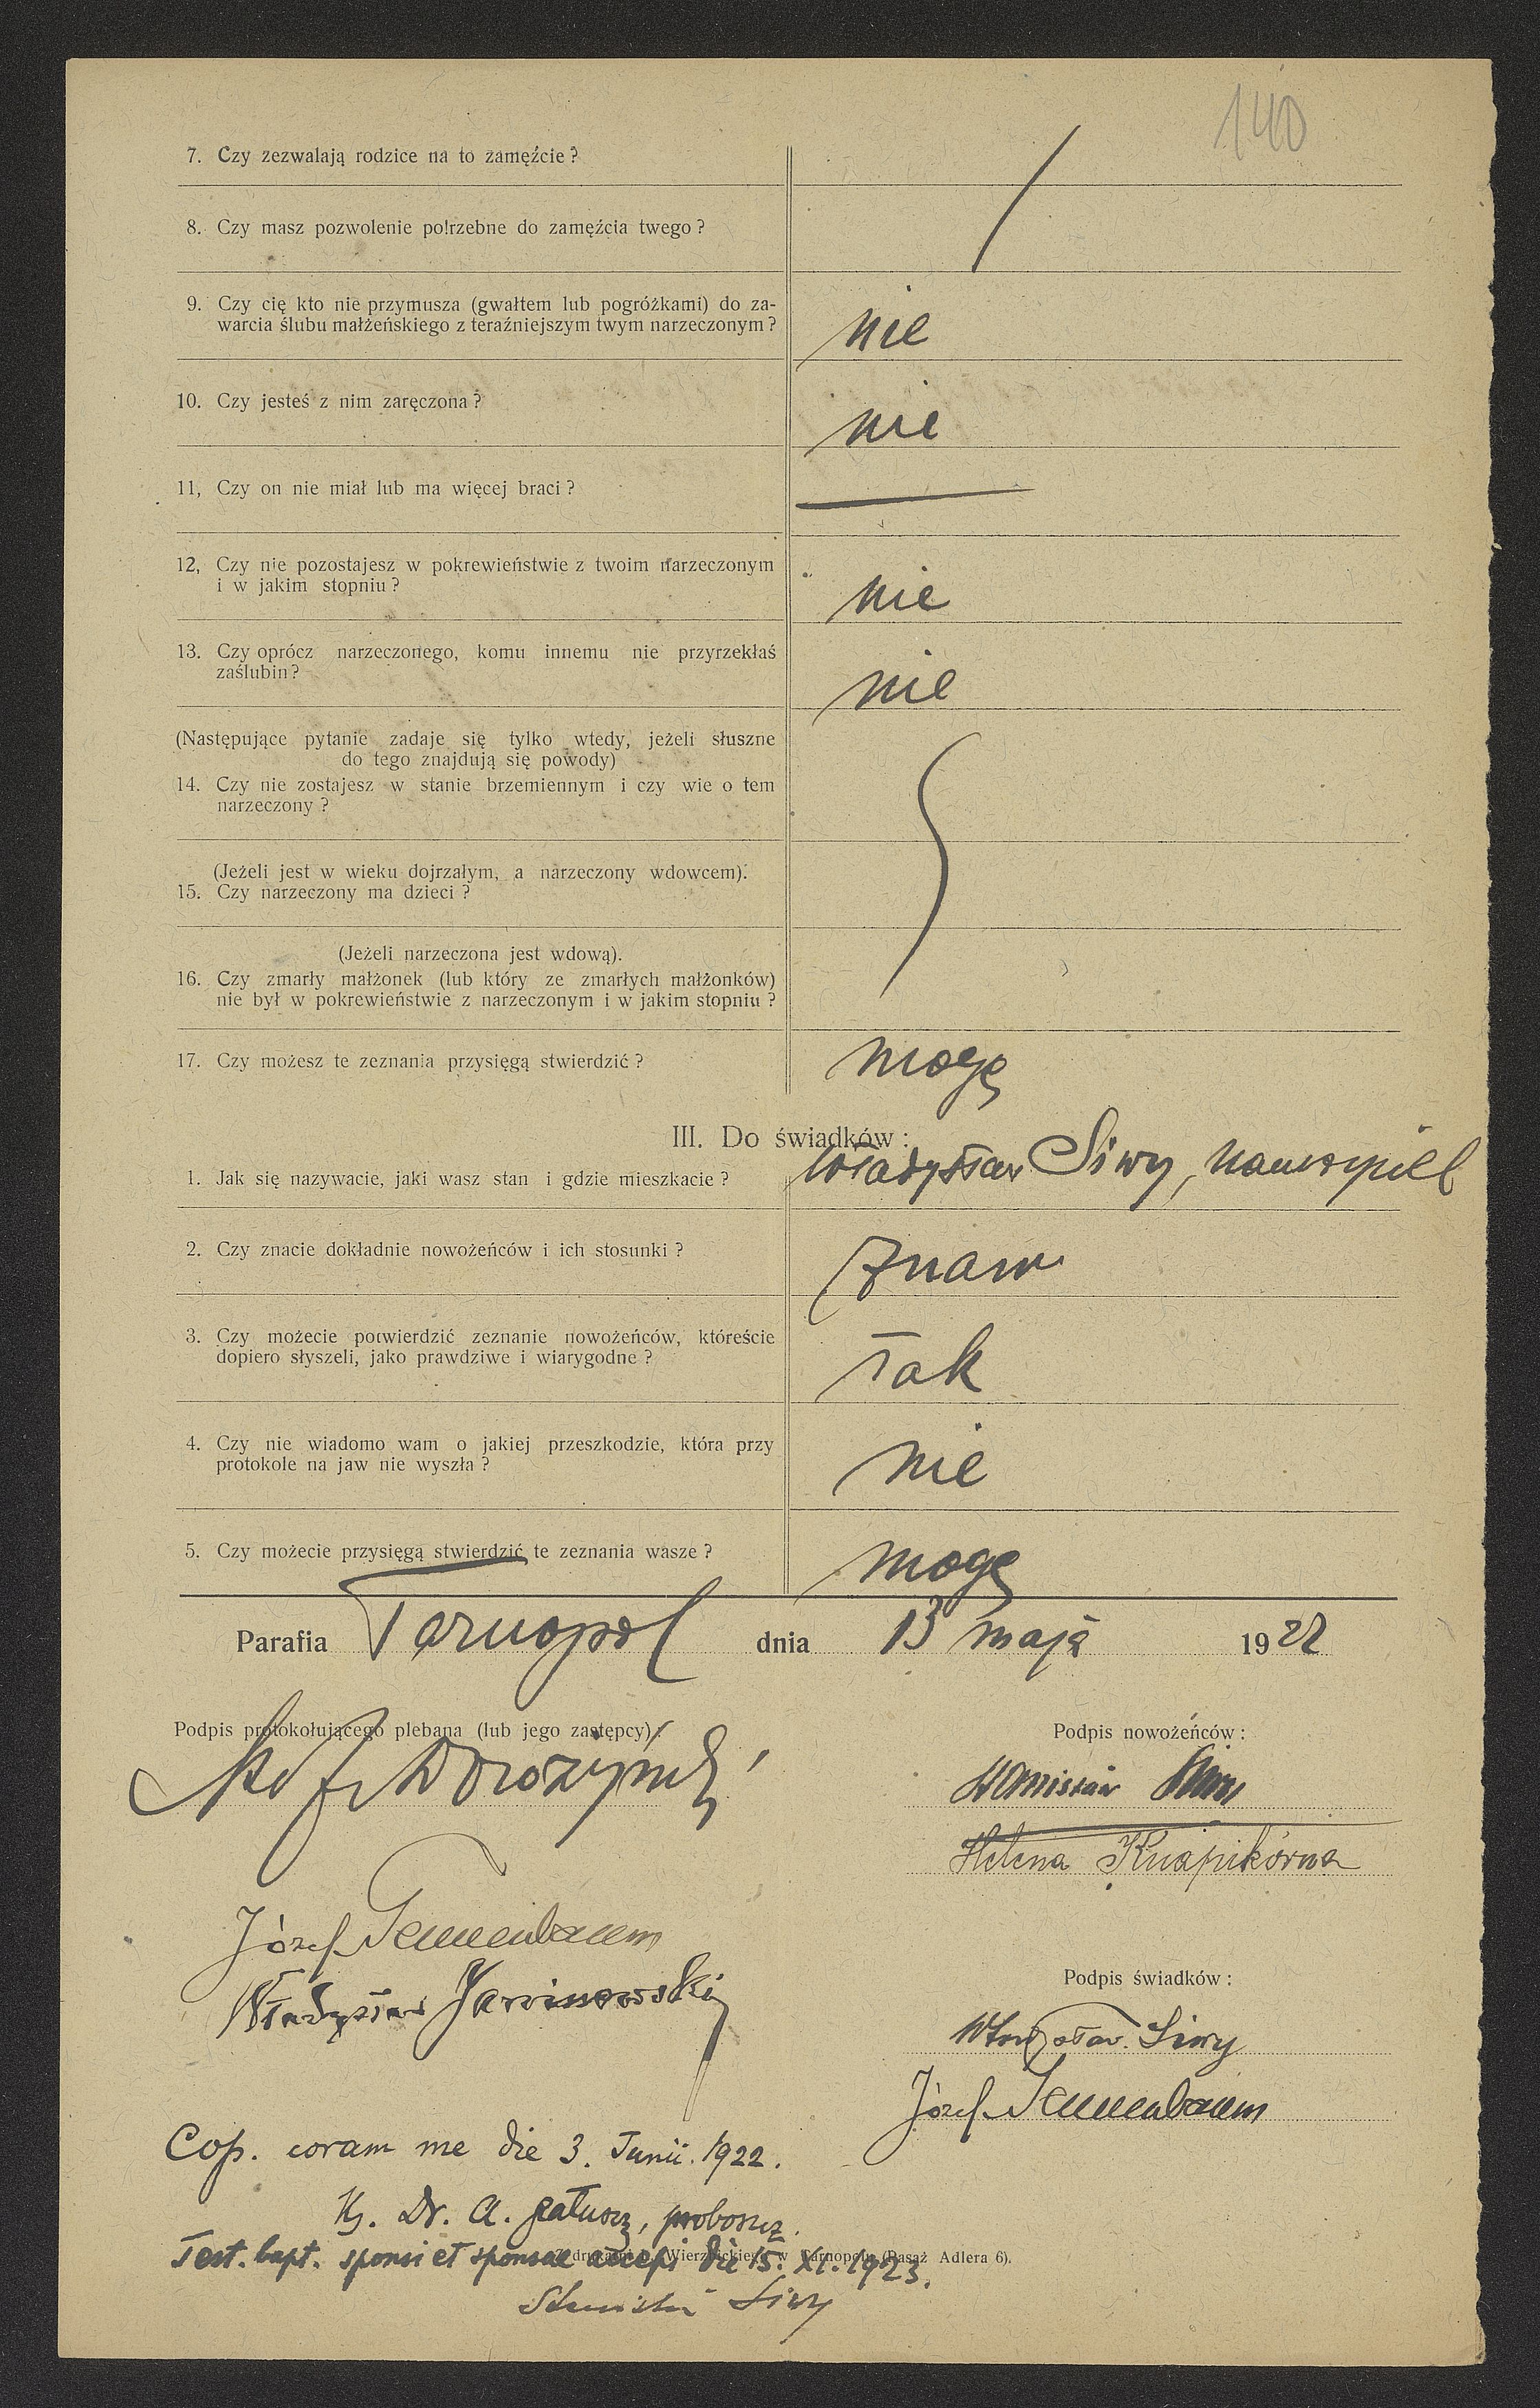 140
7. Czy zezwalają rodzice na to zamęźcie?
8. Czy masz pozwolenie potrzebne do zamęźcia twego?
9. Czy cię kto nie przymusza (gwałtem lub pogróżkami) do za-
warcia ślubu małżeńskiego z teraźniejszym twym narzeczonym?
nie
10. Czy jesteś z nim zaręczona?
nie
11, Czy on nie miał lub ma więcej braci?
12, Czy nie pozostajesz w pokrewieństwie z twoim narzeczonym
i w jakim stopniu?
nie
13. Czy oprócz narzeczonego, komu innemu nie przyrzekłaś
zaślubin?
nie
(Następujące pytanie zadaje się tylko wtedy, jeżeli słuszne
do tego znajdują się powody)
14. Czy nie zostajesz w stanie brzemiennym i czy wie o tem
narzeczony?
(Jeżeli jest w wieku dojrzałym, a narzeczony wdowcem).
15. Czy narzeczony ma dzieci?
(Jeżeli narzeczona jest wdową).
16. Czy zmarły małżonek (lub który ze zmarłych małżonków)
nie był w pokrewieństwie z narzeczonym i w jakim stopniu?
17. Czy możesz te zeznania przysięgą stwierdzić?
mogę
III. Do świadków:
1. Jak się nazywacie, jaki wasz stan i gdzie mieszkacie?
Władysław Siwy, nauczyciel
2. Czy znacie dokładnie nowożeńców i ich stosunki?
znam
3. Czy możecie potwierdzić zeznanie nowożeńców, któreście
dopiero słyszeli, jako prawdziwe i wiarygodne?
tak
4. Czy nie wiadomo wam o jakiej przeszkodzie, która przy
protokole na jaw nie wyszła?
nie
5. Czy możecie przysięgą stwierdzić te zeznania wasze?
mogę
Parafia Tarnopol dnia 13 maja 1922
Podpis protokołującego plebana (lub jego zastępcy):
Podpis nowożeńców:
Stanisław Siwy
Helena Knapikówna
Józef Tennenbaum
Władysław
Podpis świadków:
Władysław Siwy
Józef Tennenbaum
Cop. coram me die 3. Junii. 1922.
Ks. Dr. A. Gałuszę, proboszcz.
Test. bapt. sponsi et sponsae accepi die 15. XI. 1923.
Z drukarni L. Wierzbickiego w Tarnopolu (Pasaż Adlera 6).
Stanisław Siwy